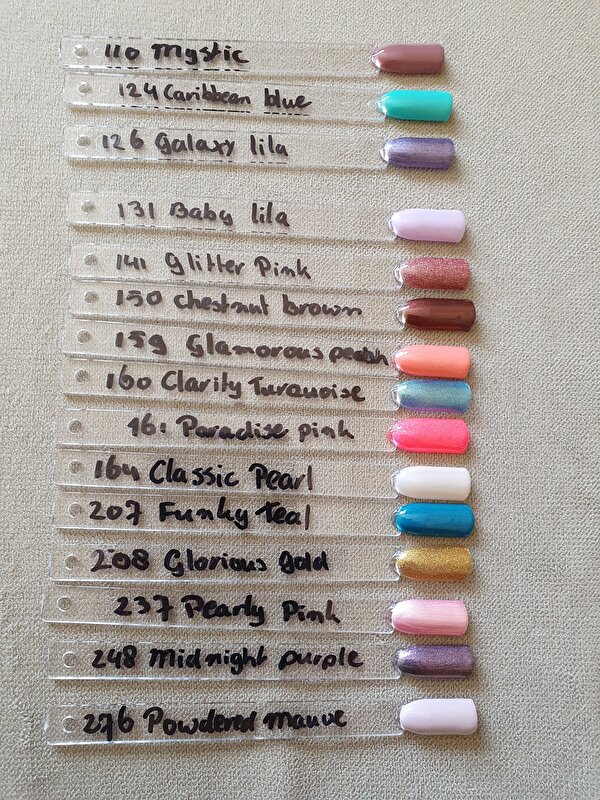 110 Mystic
124 Caribbean blue
126 Galaxy lila
131 Baby lila
141 Glitter Pink
150 Chestnut brown
159 Glamorous peach
160 Clarity Turquoise
161 Paradise pink
164 Classic Pearl
207 Funky Teal
208 Glorious Gold
237 Pearly Pink
248 Midnight purple
276 Powdered mauve